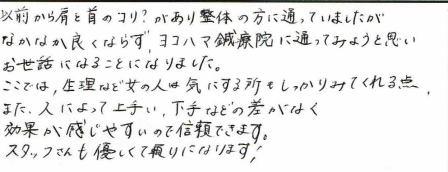 以前から肩と首のコリ?があり整体の方に通っていましたが
なかなか良くならず、ヨコハマ鍼療院に通ってみようと思い
お世話になることになりました。
ここでは、生理など女の人は気にする所もしっかりみてくれる点、
また、人によって上手い、下手などの差がなく
効果が感じやすいので信頼できます。
スタッフさんも優しくて頼りになります!